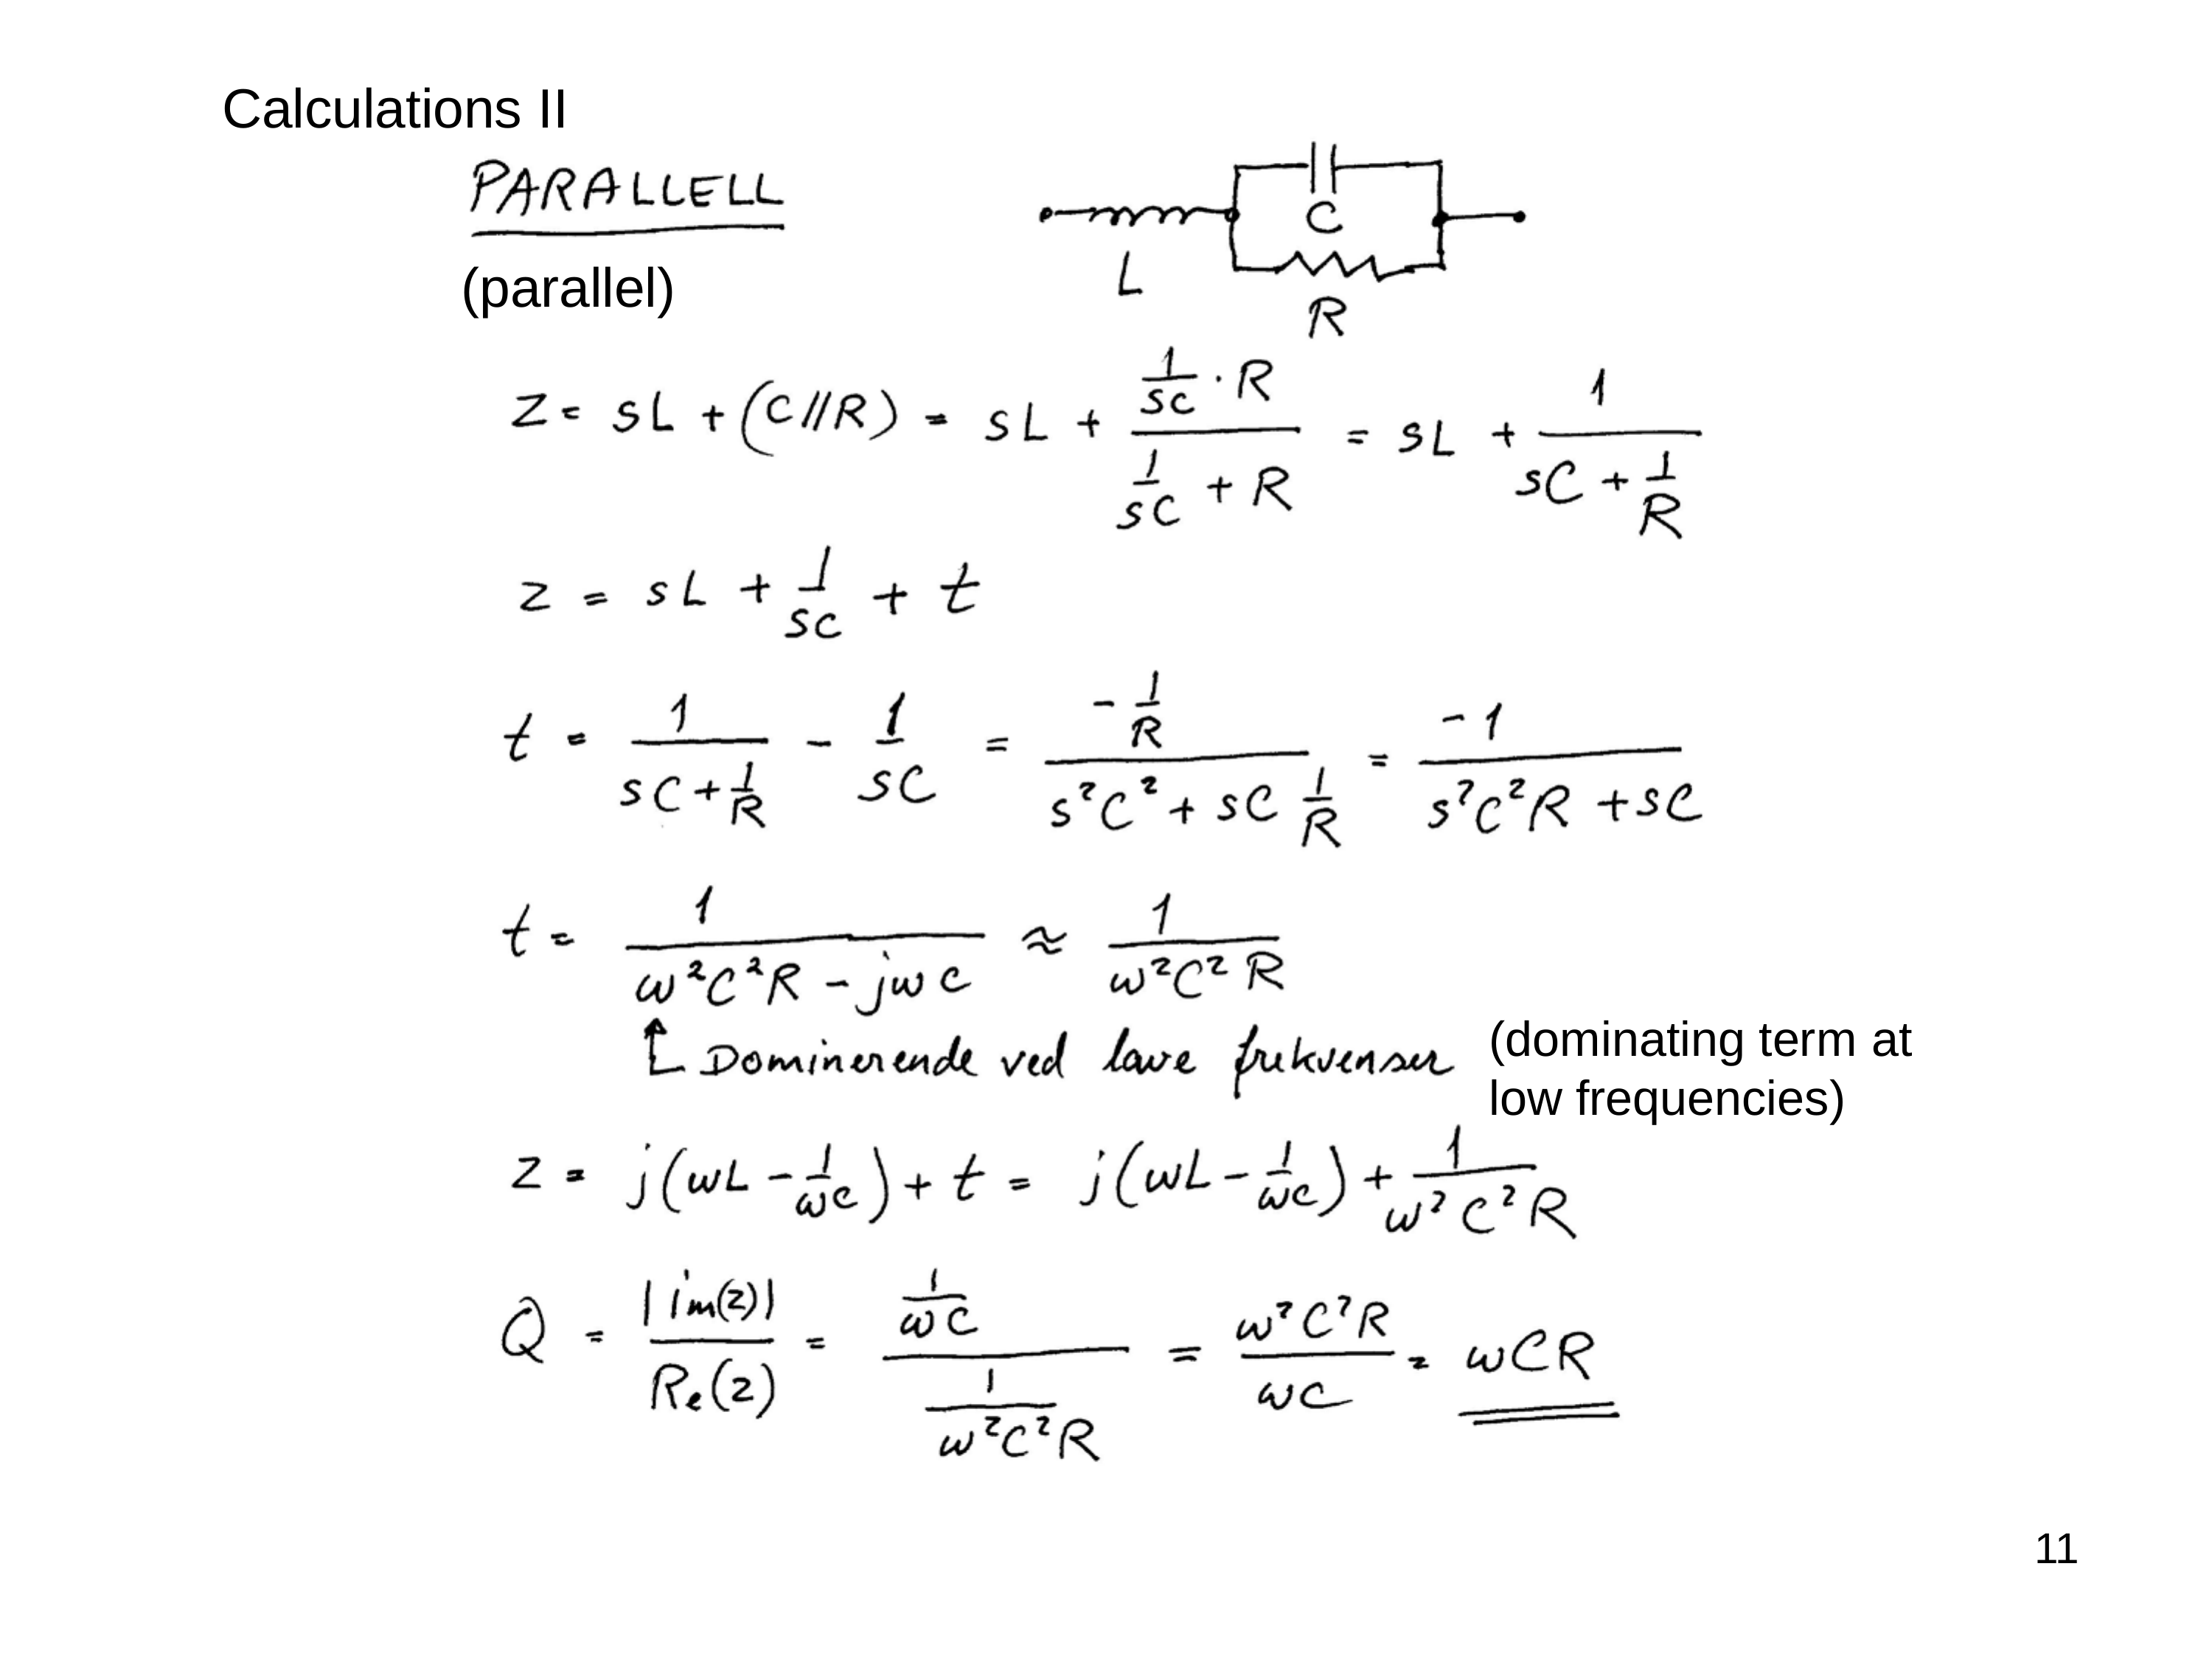 Calculations II
PARALLELL
(parallel)
C
L
R
Z = sL + (C//R) = sL + (1/sC · R)/(1/sC + R) = sL + 1/(sC + 1/R)
z = sL + 1/sC + t
t = 1/(sC + 1/R) - 1/sC = (-1/R)/(s²C² + sC 1/R) = -1/(s²C²R + sC)
t = 1/(ω²C²R - jωC) ≈ 1/(ω²C²R)
Dominerende ved lave frekvenser
(dominating term at
low frequencies)
z = j(ωL - 1/ωC) + t = j(ωL - 1/ωC) + 1/(ω²C²R)
Q = |im(z)|/Re(z) = (1/ωC)/(1/(ω²C²R)) = ω²C²R/ωC = ωCR
11